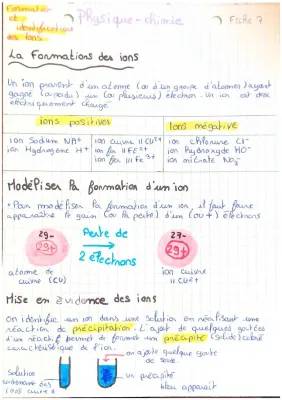 Formation
et
identification
des ions
Physique-chimie
Fiche 7
La Formations des ions
Un ion provient d'un atome (ou d'un groupe d'atomes) ayant
gagné (ou perdu) un (ou plusieurs) électron. Un ion est donc
électriquement chargé
ions positives
Ions négative
ion Sodium NA+
ion Hydrogène H+
ion cuivre II CU2+
ion fer II FE2+
ion fer III Fe3+
ion chlorure Cl-
ion hydroxyde HO-
ion nitrate NO3-
Modéliser la formation d'un ion
Pour modéliser la formation d'un ion, il faut faire
apparaître le gain (ou la perte) d'un (ou +) électrons
29-
29+
Perte de
2 électrons
27-
29+
atome de
cuivre (CU)
ion cuivre
II CU2+
Mise en évidence des ions
On identifie un ion dans une solution en réalisant une
réaction de précipitation. L'ajout de quelques gouttes
d'un réactif permet de former un précipité (solide) coloré
caractéristique de l'ion.
on ajoute quelque goutte
de soude
Solution
contenant des
ions cuivre II
un précipité
bleu apparait